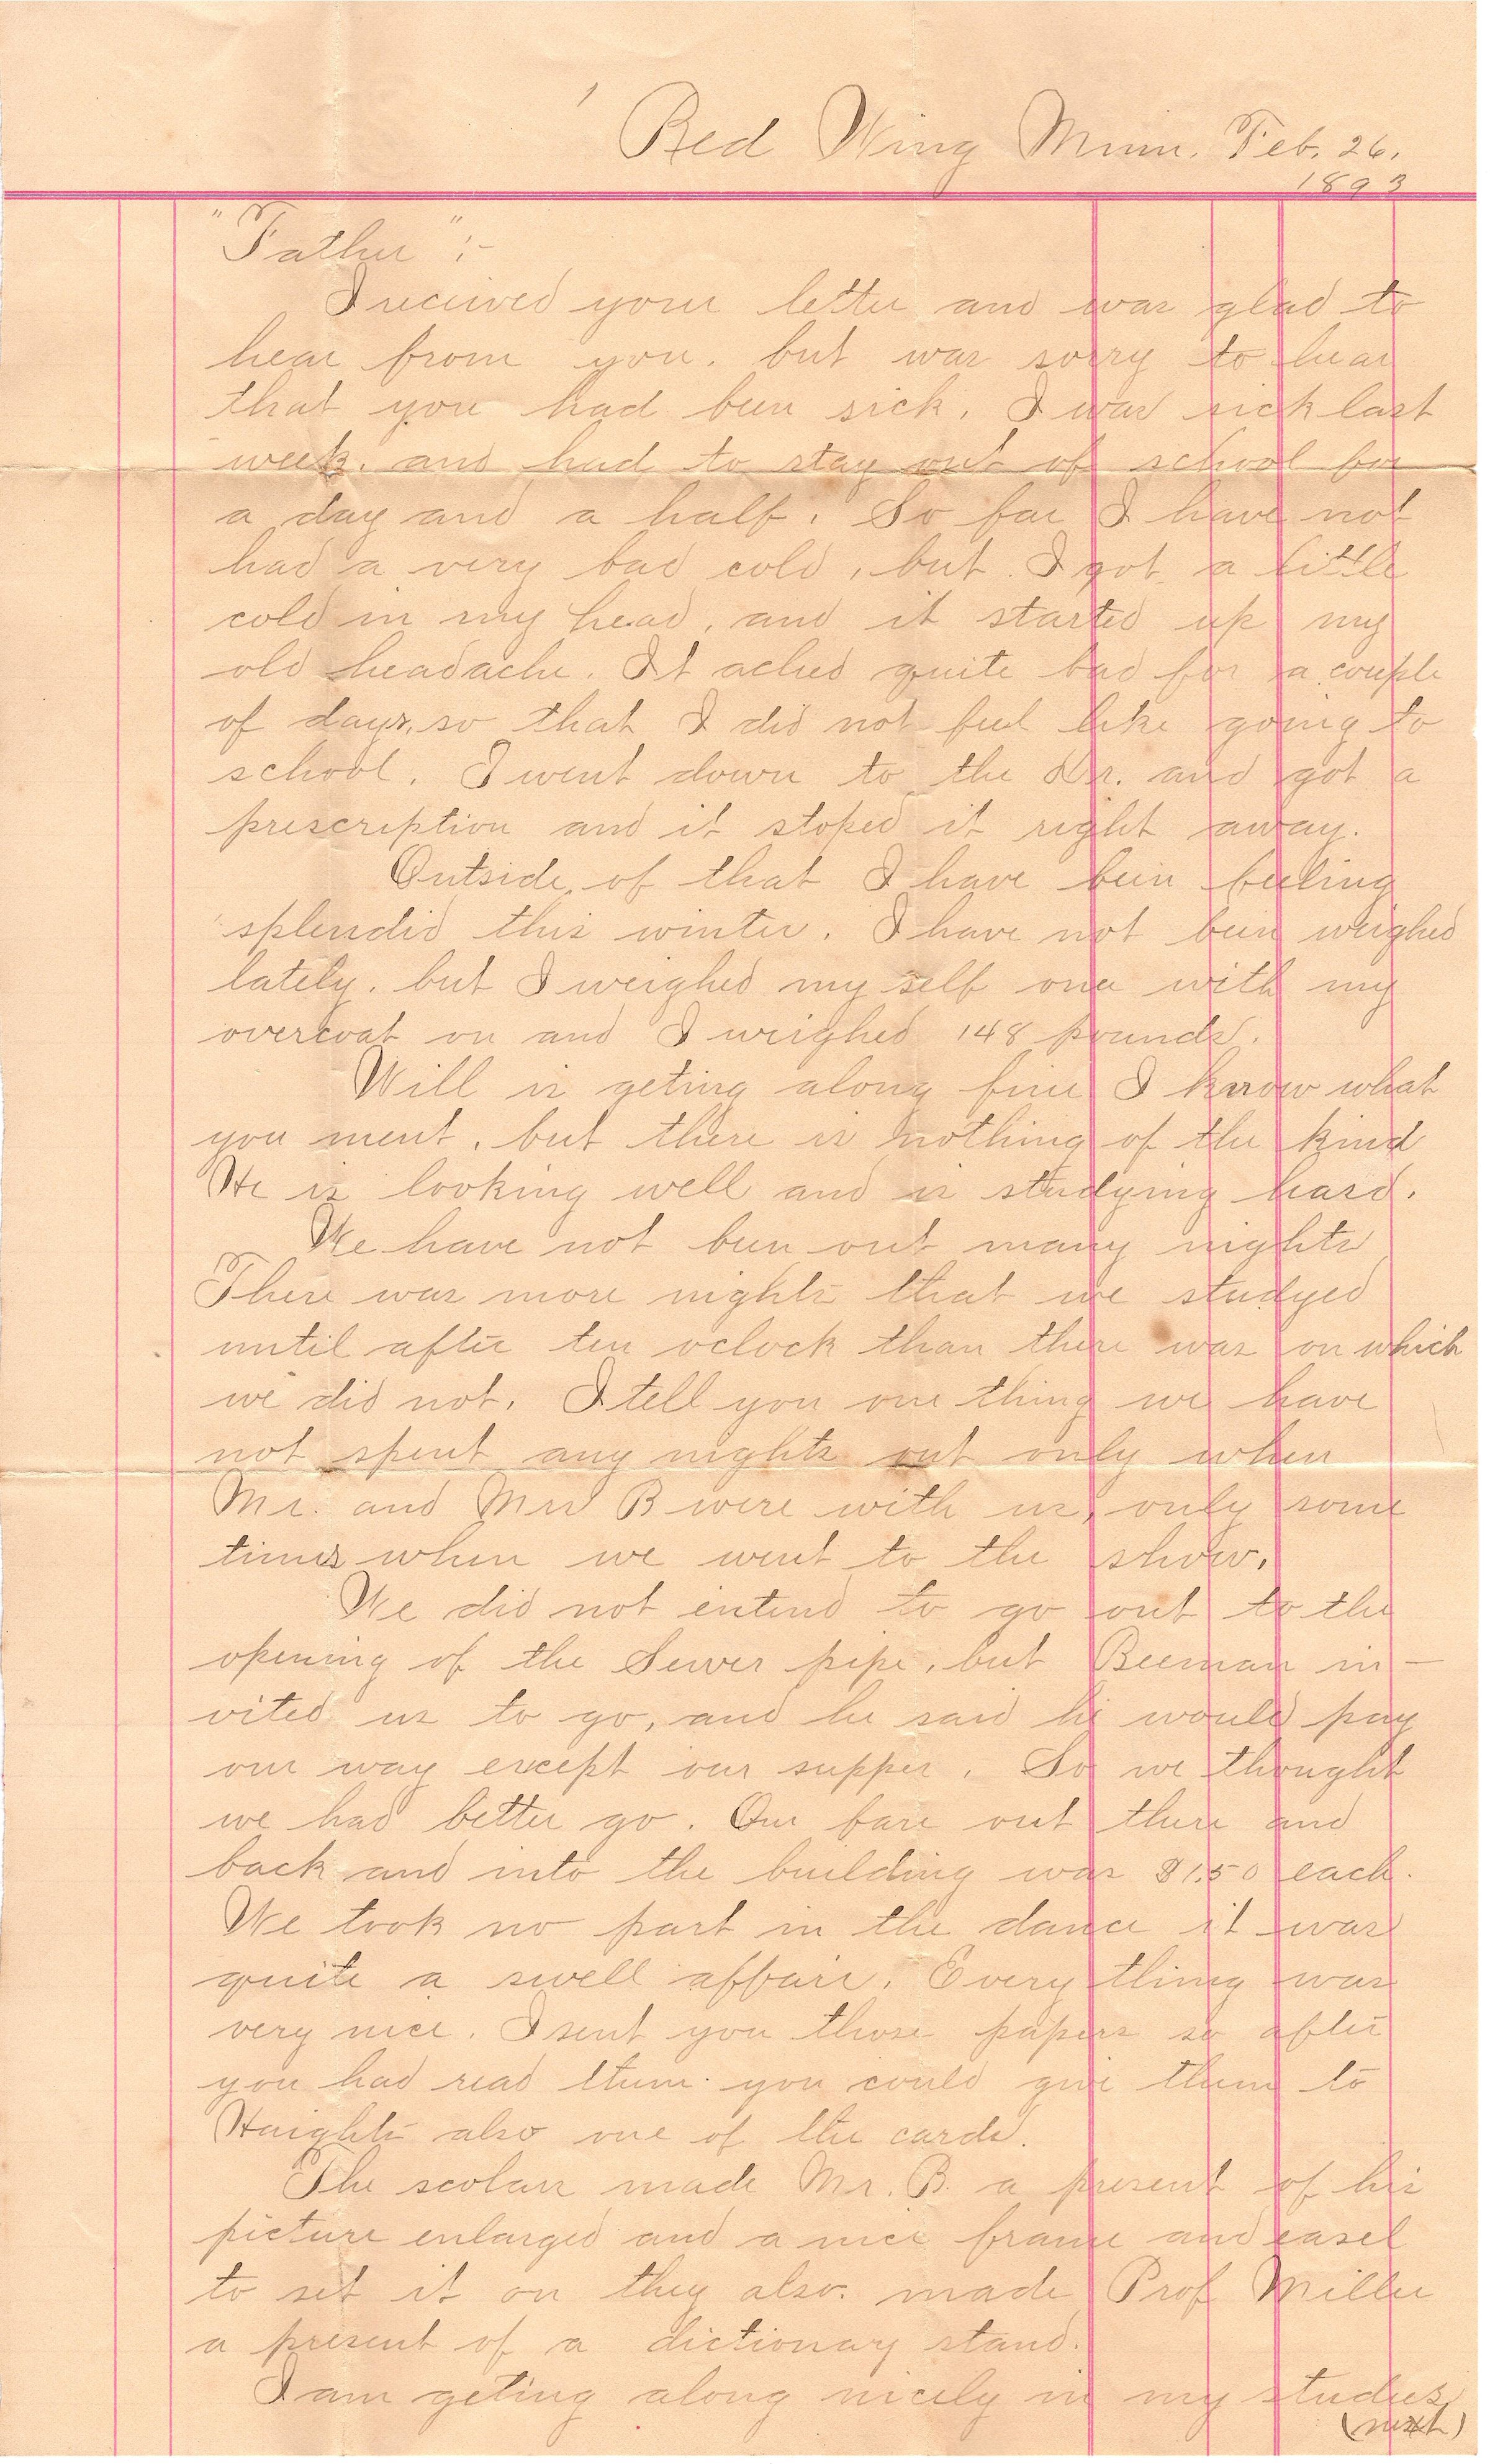 Red Wing Minn. Feb. 26,
1893
"Father":-
I received your letter and was glad to
hear from you. but was sorry to hear
that you had been sick. I was sick last
week. and had to stay out of school for
a day and a half. So far I have not
had a very bad cold, but I got a little
cold in my head, and it started up my
old headache. It ached quite bad for a couple
of days, so that I did not feel like going to
school. I went down to the Dr. and got a
prescription and it stoped it right away.
Outside of that I have been feeling
splendid this winter. I have not been weighed
lately. but I weighed my self once with my
overcoat on and I weighed 148 pounds.
Will is geting along fine I know what
you ment, but there is nothing of the kind
He is looking well and is studying hard.
We have not been out many nights
There was more nights that we studyed
until after ten oclock than there was on which
we did not. I tell you one thing we have
not spent any nights out only when
Mr. and Mrs B were with us, only some
times when we went to the show.
We did not entend to go out to the
opening of the Sewer pipe, but Beeman in-
vited us to go, and he said he would pay
our way except our supper. So we thought
we had better go. Our fare out there and
back and into the building was $1.50 each.
We took no part in the dance it was
quite a swell affair. Every thing was
very nice. I sent you those papers so after
you had read them you could give them to
Haights also one of the cards.
The scolars made Mr. B. a present of his
picture enlarged and a nice frame and easel
to set it on they also made Prof Miller
a present of a dictionary stand.
I am geting along nicely in my studies
(next)